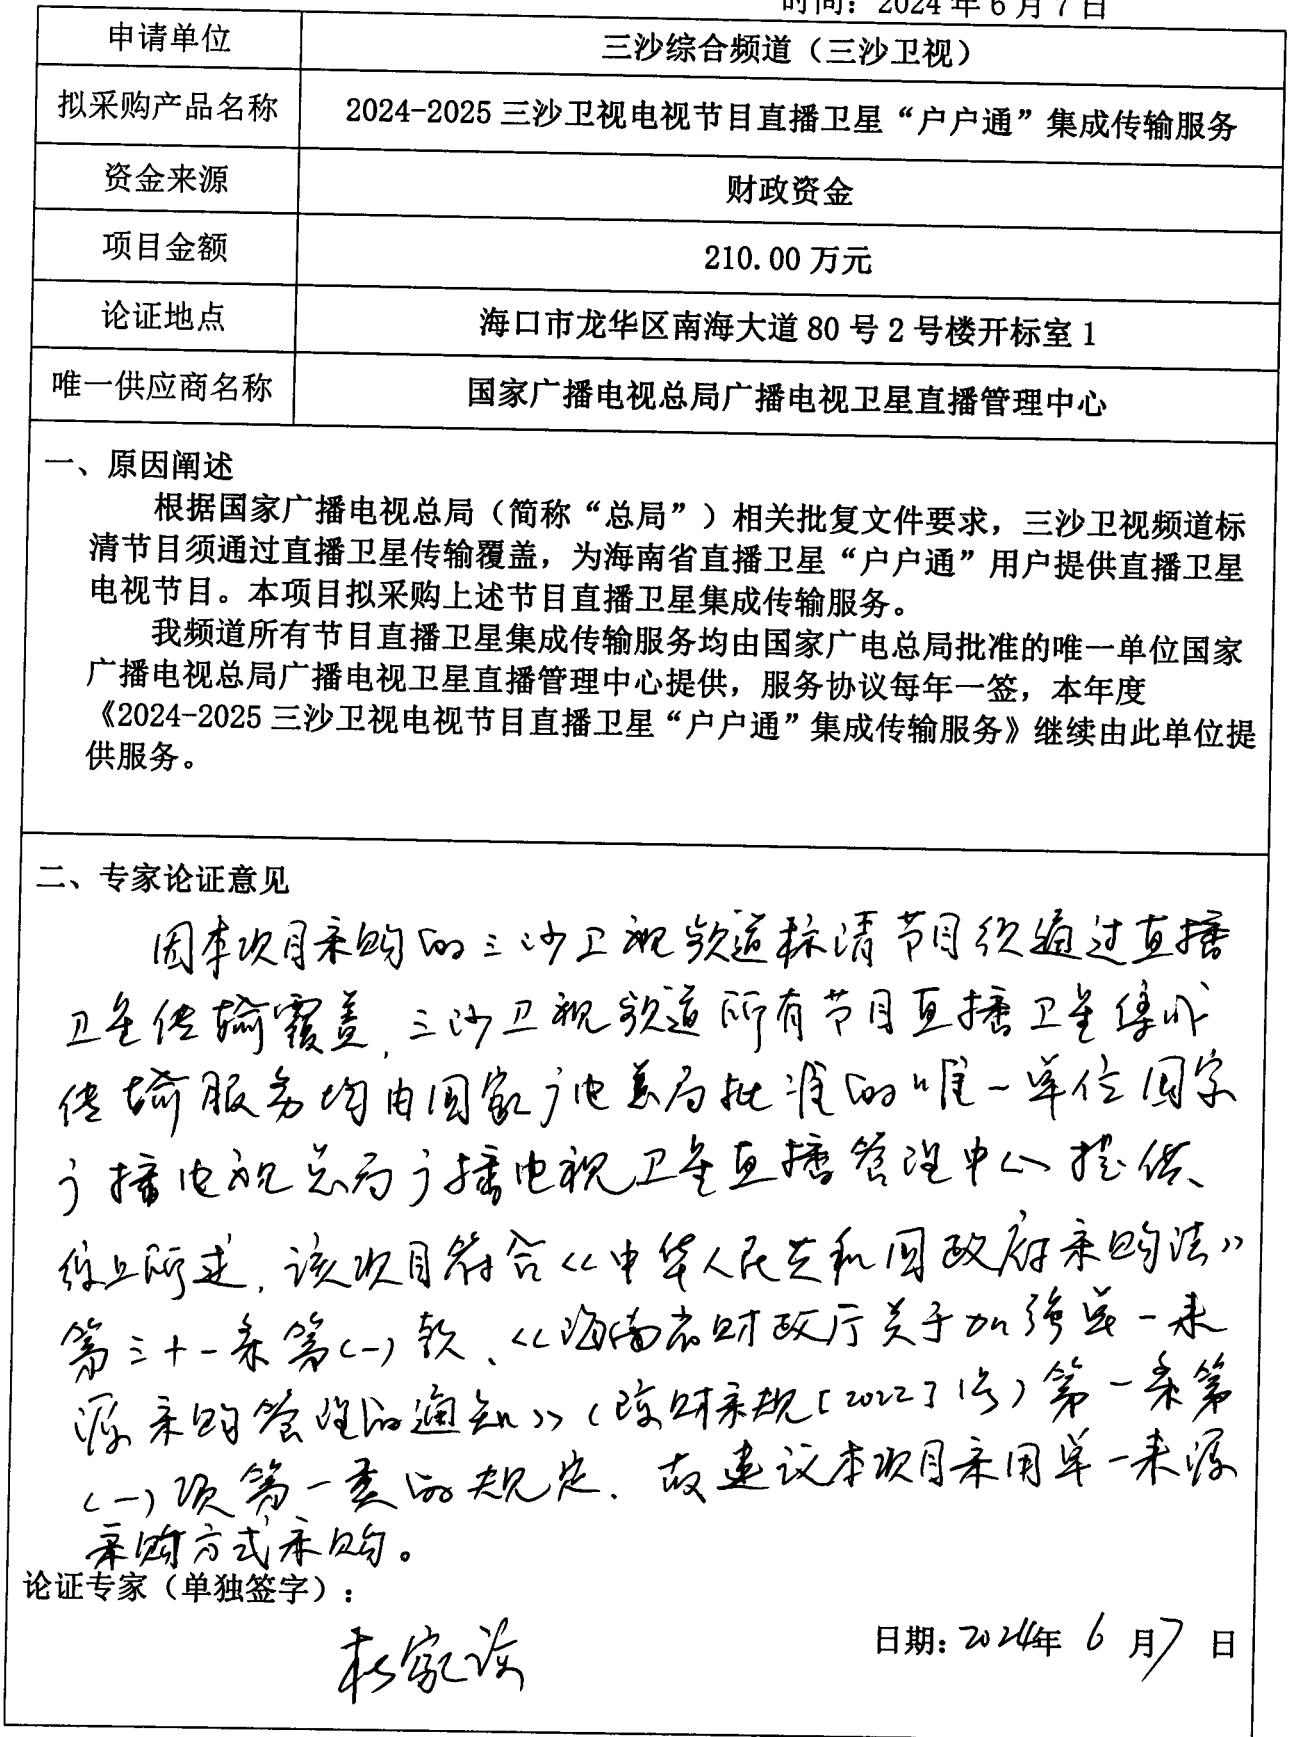 时间：2024年6月7日
申请单位 三沙综合频道（三沙卫视）
拟采购产品名称 2024-2025三沙卫视电视节目直播卫星“户户通”集成传输服务
资金来源 财政资金
项目金额 210.00万元
论证地点 海口市龙华区南海大道80号2号楼开标室1
唯一供应商名称 国家广播电视总局广播电视卫星直播管理中心
一、原因阐述
根据国家广播电视总局（简称“总局”）相关批复文件要求，三沙卫视频道标
清节目须通过直播卫星传输覆盖，为海南省直播卫星“户户通”用户提供直播卫星
电视节目。本项目拟采购上述节目直播卫星集成传输服务。
我频道所有节目直播卫星集成传输服务均由国家广电总局批准的唯一单位国家
广播电视总局广播电视卫星直播管理中心提供，服务协议每年一签，本年度
《2024-2025三沙卫视电视节目直播卫星“户户通”集成传输服务》继续由此单位提
供服务。
二、专家论证意见
因本项目采购的三沙卫视频道标清节目须通过直播
卫星传输覆盖，三沙卫视频道所有节目直播卫星集成
传输服务均由国家广电总局批准的唯一单位国家
广播电视总局广播电视卫星直播管理中心提供、
综上所述，该项目符合《中华人民共和国政府采购法》
第三十一条第(一)款、《海南省财政厅关于加强单一来
源采购管理的通知》（琼财采规[2022]1号）第一条第
(一)项第一类的规定．故建议本项目采用单一来源
采购方式采购。
论证专家（单独签字）：
日期：2024年6月7日